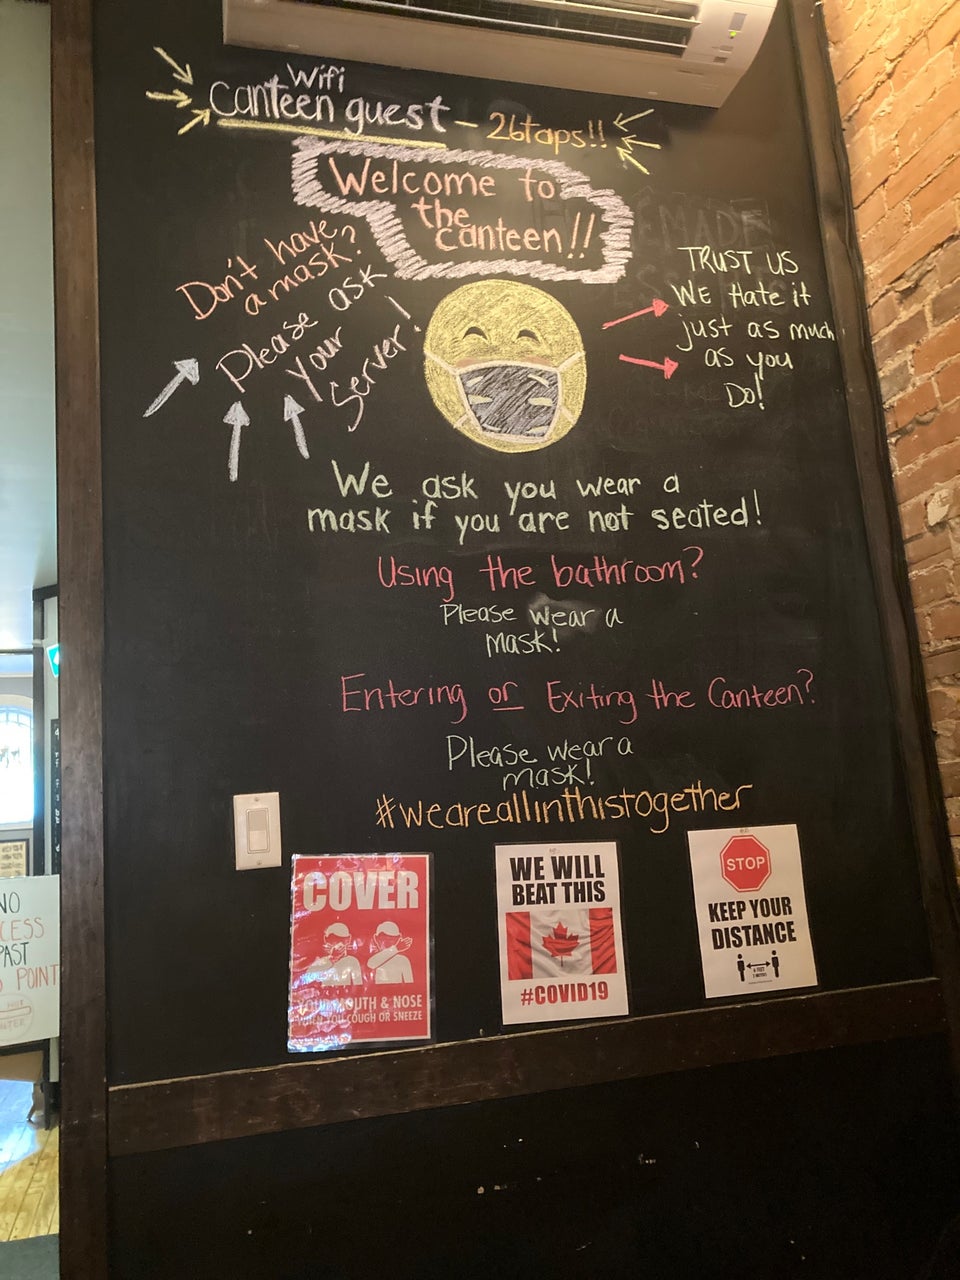 Wifi
Canteen guest - 26taps!!
Welcome to
the
Canteen!!
Don't have
a mask?
Please ask
your
Server!
TRUST US
WE Hate it
just as much
as you
Do!
We ask you wear a
mask if you are not seated!
Using the bathroom?
Please wear a
mask!
Entering or Exiting the Canteen?
Please wear a
mask!
#weareallinthistogether
COVER
YOUR MOUTH & NOSE
WHEN YOU COUGH OR SNEEZE
WE WILL
BEAT THIS
#COVID19
STOP
KEEP YOUR
DISTANCE
6 FEET
2 METERS
NO
CESS
PAST
POINT
EMADE